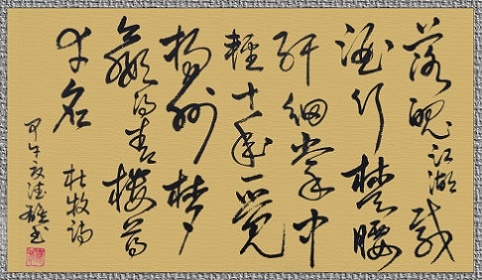 落魄江湖載
酒行楚腰
纤細掌中
輕十年一覺
揚州梦
贏得青樓薄
幸名
杜牧詩
甲午